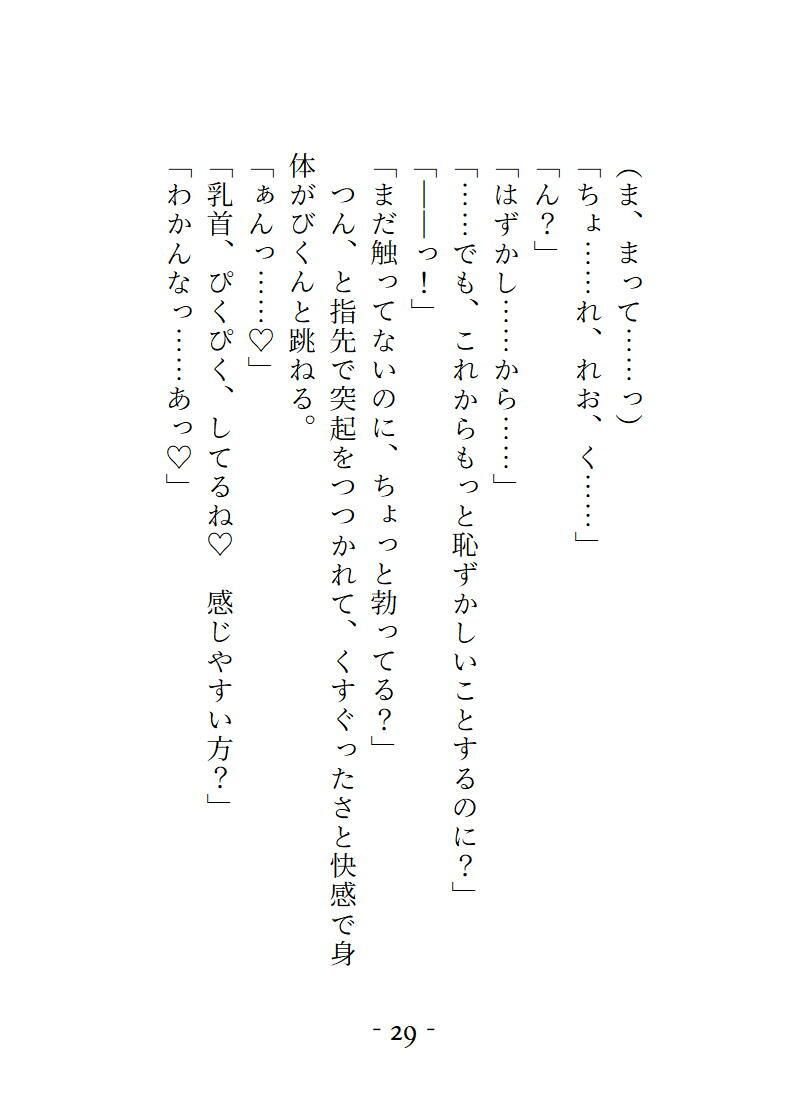 (ま、まって……っ)
「ちょ……れ、れお、く……」
「ん？」
「はずかし……から……」
「……でも、これからもっと恥ずかしいことするのに？」
「――っ！」
「まだ触ってないのに、ちょっと勃ってる？」
　つん、と指先で突起をつつかれて、くすぐったさと快感で身
体がびくんと跳ねる。
「ぁんっ……♡」
「乳首、ぴくぴく、してるね♡　感じやすい方？」
「わかんなっ……あっ♡」
- 29 -